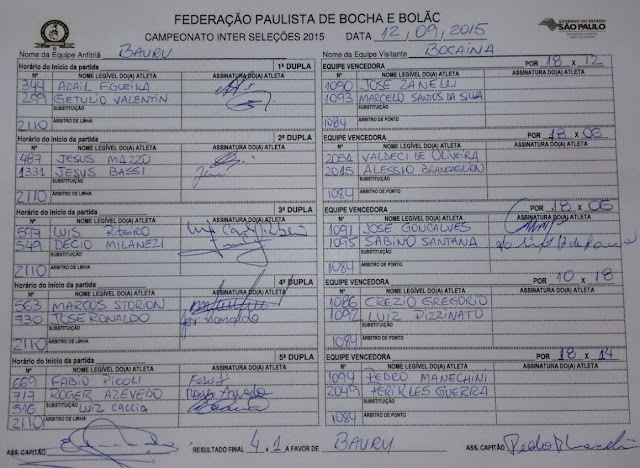 FEDERAÇÃO PAULISTA DE BOCHA E BOLÃO
CAMPEONATO INTER SELEÇÕES 2015 DATA 12,09,2015
GOVERNO DO ESTADO
SÃO PAULO
Nome da Equipe Anfitriã BAURU Nome da Equipe Visitante BOCAINA
Horário do início da partida 1ª DUPLA EQUIPE VENCEDORA POR 18 X 12
Nº NOME LEGÍVEL DO(A) ATLETA ASSINATURA DO(A) ATLETA Nº NOME LEGÍVEL DO(A) ATLETA ASSINATURA DO(A) ATLETA
344 ADAIL FGUEIRA 1090 JOSE ZANELLI
299 GETULIO VALENTIN 1093 MARCELO SANTOS DA SILVA
SUBSTITUIÇÃO SUBSTITUIÇÃO
2110 ÁRBITRO DE LINHA 1084 ÁRBITRO DE PONTO
Horário do início da partida 2ª DUPLA EQUIPE VENCEDORA POR 18 X 06
Nº NOME LEGÍVEL DO(A) ATLETA ASSINATURA DO(A) ATLETA Nº NOME LEGÍVEL DO(A) ATLETA ASSINATURA DO(A) ATLETA
487 JESUS MAZZO 2051 VALDECI DE OLIVEIRA
1331 JESUS BASSI 2015 ALESSIO BRANCAGLION
SUBSTITUIÇÃO SUBSTITUIÇÃO
2110 ÁRBITRO DE LINHA 1084 ÁRBITRO DE PONTO
Horário do início da partida 3ª DUPLA EQUIPE VENCEDORA POR 18 X 06
Nº NOME LEGÍVEL DO(A) ATLETA ASSINATURA DO(A) ATLETA Nº NOME LEGÍVEL DO(A) ATLETA ASSINATURA DO(A) ATLETA
597 LUIS RIBEIRO 1091 JOSE GONCALVES
549 DECIO MILANEZI 1095 SABINO SANTANA
SUBSTITUIÇÃO SUBSTITUIÇÃO
2110 ÁRBITRO DE LINHA 1084 ÁRBITRO DE PONTO
Horário do início da partida 4ª DUPLA EQUIPE VENCEDORA POR 10 X 18
Nº NOME LEGÍVEL DO(A) ATLETA ASSINATURA DO(A) ATLETA Nº NOME LEGÍVEL DO(A) ATLETA ASSINATURA DO(A) ATLETA
563 MARCOS STORION 1086 CREZIO GREGORIO
730 JOSE RONALDO 1092 LUIZ DIZZINATO
SUBSTITUIÇÃO SUBSTITUIÇÃO
2110 ÁRBITRO DE LINHA 1084 ÁRBITRO DE PONTO
Horário do início da partida 5ª DUPLA EQUIPE VENCEDORA POR 18 X 14
Nº NOME LEGÍVEL DO(A) ATLETA ASSINATURA DO(A) ATLETA Nº NOME LEGÍVEL DO(A) ATLETA ASSINATURA DO(A) ATLETA
669 FABIO PICOLI 1094 PEDRO MANECHINI
717 ROGER AZEVEDO 2049 PERIKLES GUERRA
516 SUBSTITUIÇÃO LUIZ CACCIA SUBSTITUIÇÃO
2110 ÁRBITRO DE LINHA 1084 ÁRBITRO DE PONTO
ASS. CAPITÃO RESULTADO FINAL 4 x 1 A FAVOR DE BAURU ASS. CAPITÃO Pedro